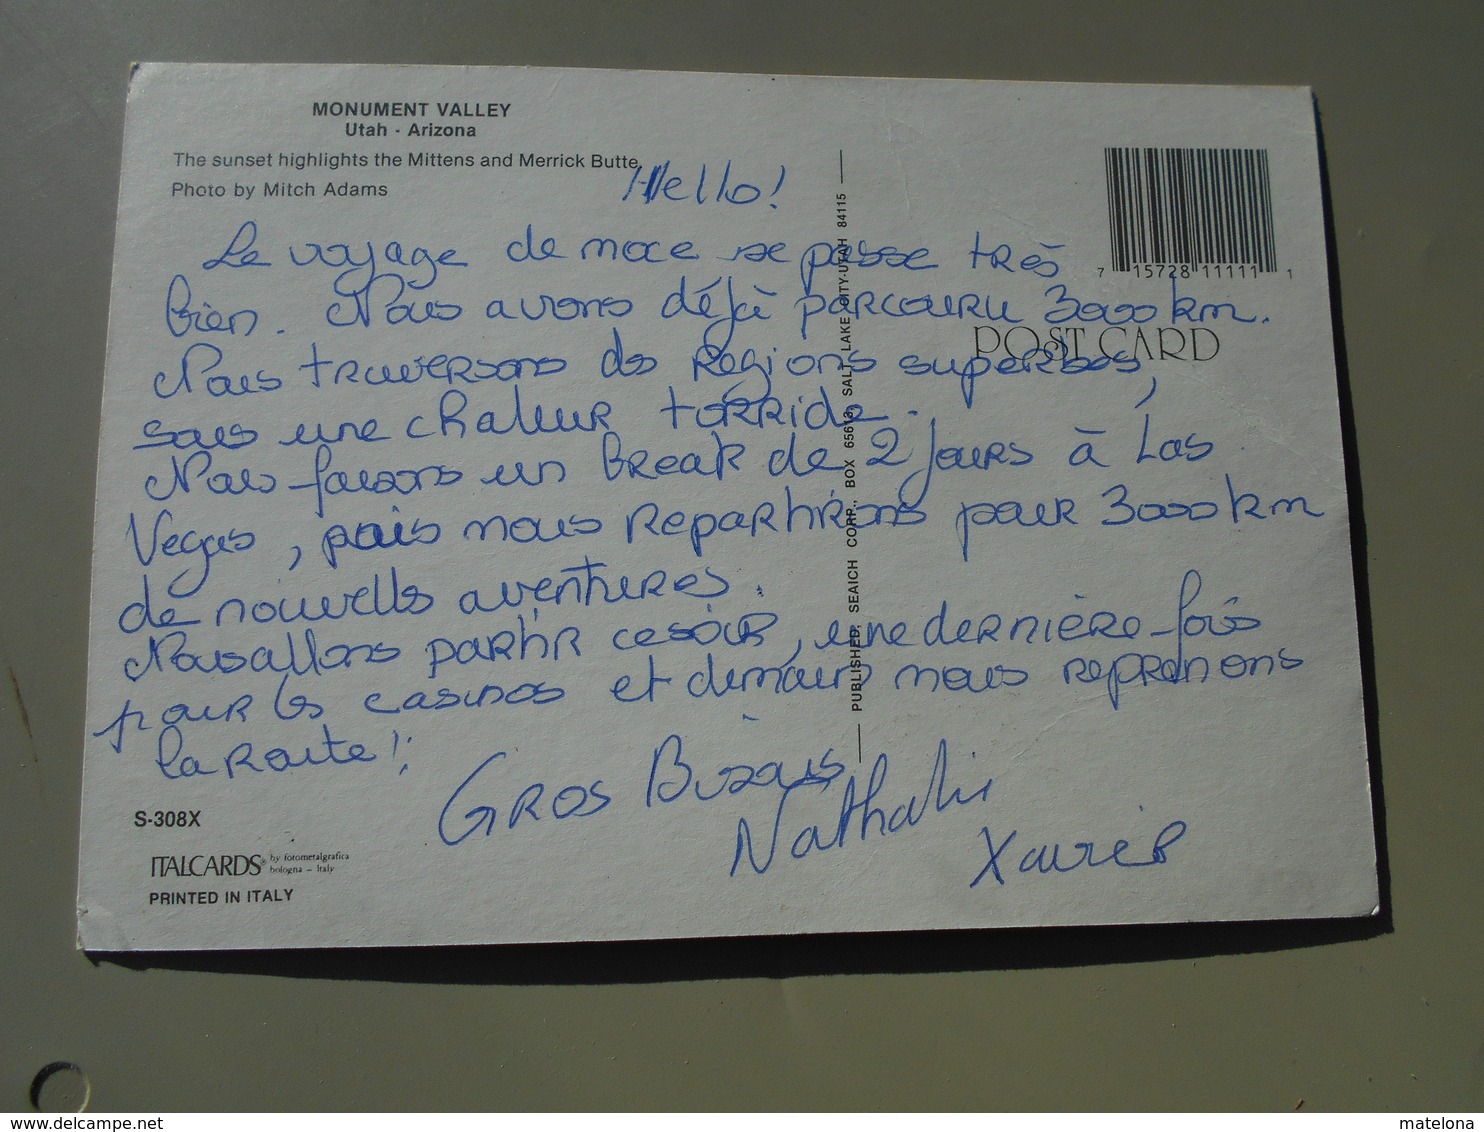 MONUMENT VALLEY
Utah - Arizona
The sunset highlights the Mittens and Merrick Butte
Photo by Mitch Adams
Hello!
Le voyage de noce se passe très
bien. Nous avons déjà parcouru 3000 km.
Nous traversons des régions superbes,
sous une chaleur torride.
Nous faisons un break de 2 jours à Las
Vegas, puis nous repartirons pour 3000 km
de nouvelles aventures.
Nous allons partir ce soir, une dernière fois
pour les casinos et demain nous reprenons
la route!
GROS Bisous
Nathalie
Xavier
7 15728 11111 1
POST CARD
PUBLISHED, SEAICH CORP., BOX 65613, SALT LAKE CITY-UTAH 84115
S-308X
ITALCARDS® by fotometalgrafica
bologna - Italy
PRINTED IN ITALY
www.delcampe.net
matelona